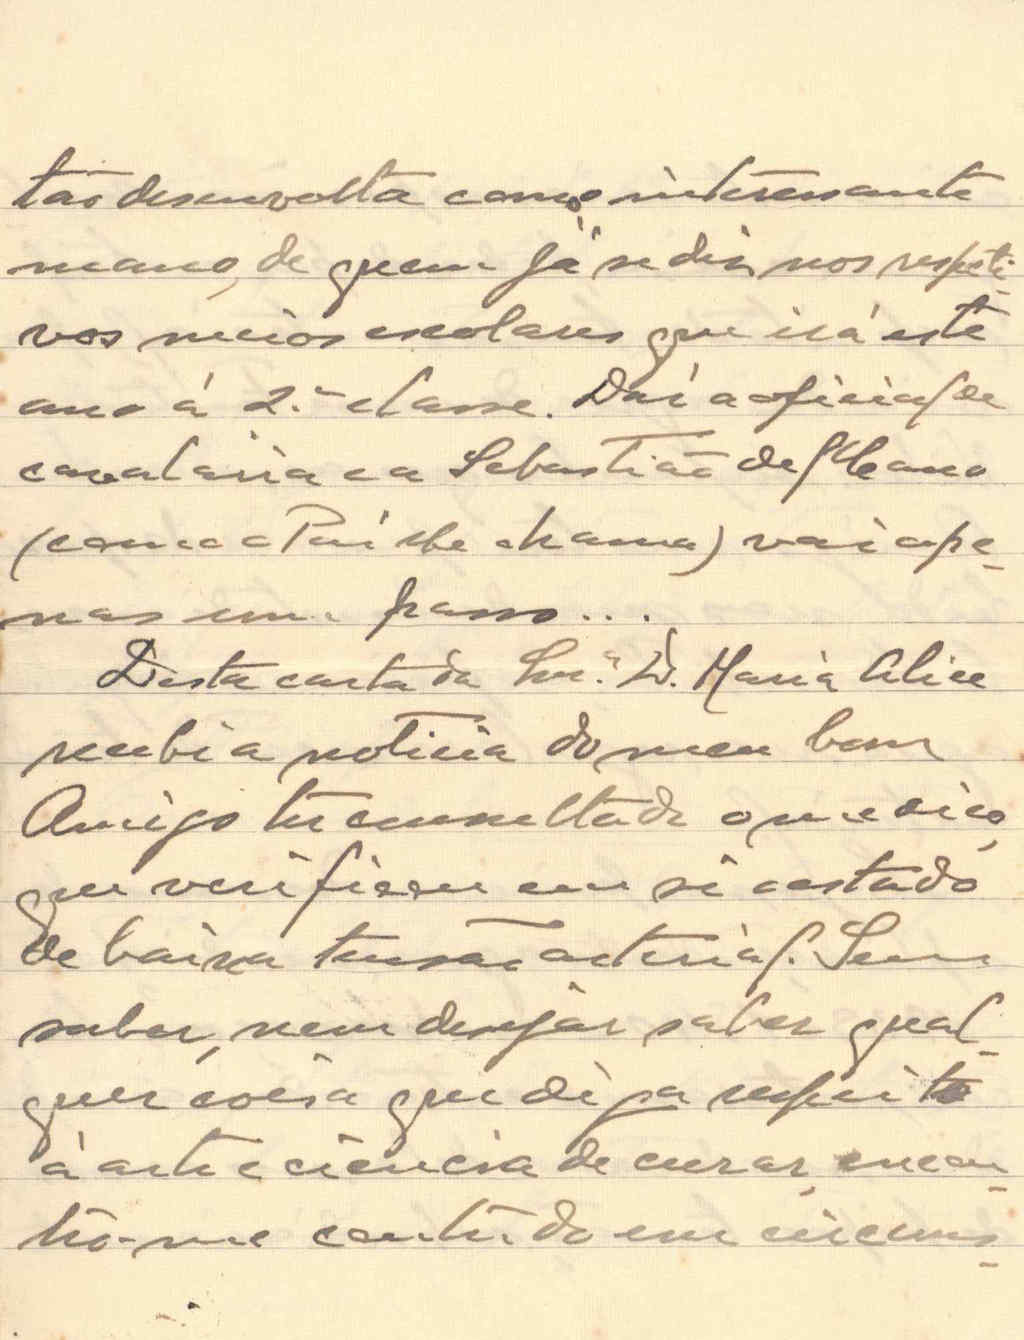 tão desenvolta como interessante
mano, de quem já se diz nos respeti-
vos meios escolares que irá este
ano á 2.ª classe. Daí a oficial de
cavalaria e a Sebastião del Cano
(como a Pai lhe chama) vai ape-
nas um passo...
Desta carta da Snr.ª D. Maria Alice
recebi a noticia do meu bom
Amigo ter consultado o medico,
que verificou em si o estado
de baixa tensão arterial. Sem
saber, nem desejar saber qual-
quer coisa que diga respeito
á arte e ciencia de curar, encon-
tro-me contudo em circuns-